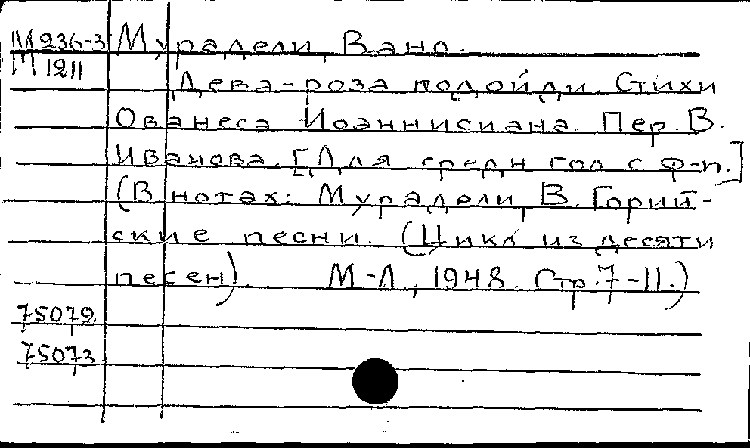 М 236-3 Мурадели, Вано.
М 1211
Дева-роза подойди. Стихи
Ованеса Иоаннисиана. Пер. В.
Иванова. [Для средн гол с ф-п.]
(В нотах: Мурадели, В. Горий-
ские песни. (Цикл из десяти
песен). М-Л, 1948. Стр. 7-11.)
75079
75073